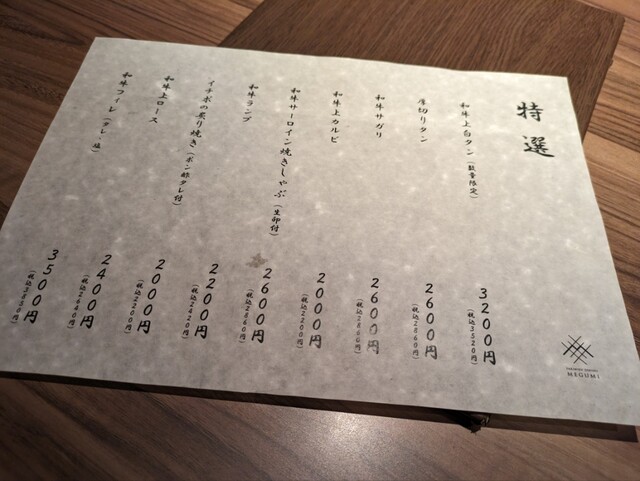 特選
和牛上白タン(数量限定)
3200円
(税込3520円)
厚切りタン
2600円
(税込2860円)
和牛サガリ
2600円
(税込2860円)
和牛上カルビ
2000円
(税込2200円)
和牛サーロイン焼きしゃぶ(生卵付)
2600円
(税込2860円)
和牛ランプ
2200円
(税込2420円)
イチボの炙り焼き(ポン酢タレ付)
2000円
(税込2200円)
和牛上ロース
2400円
(税込2640円)
和牛フィレ(タレ・塩)
3500円
(税込3850円)
MEGUMI